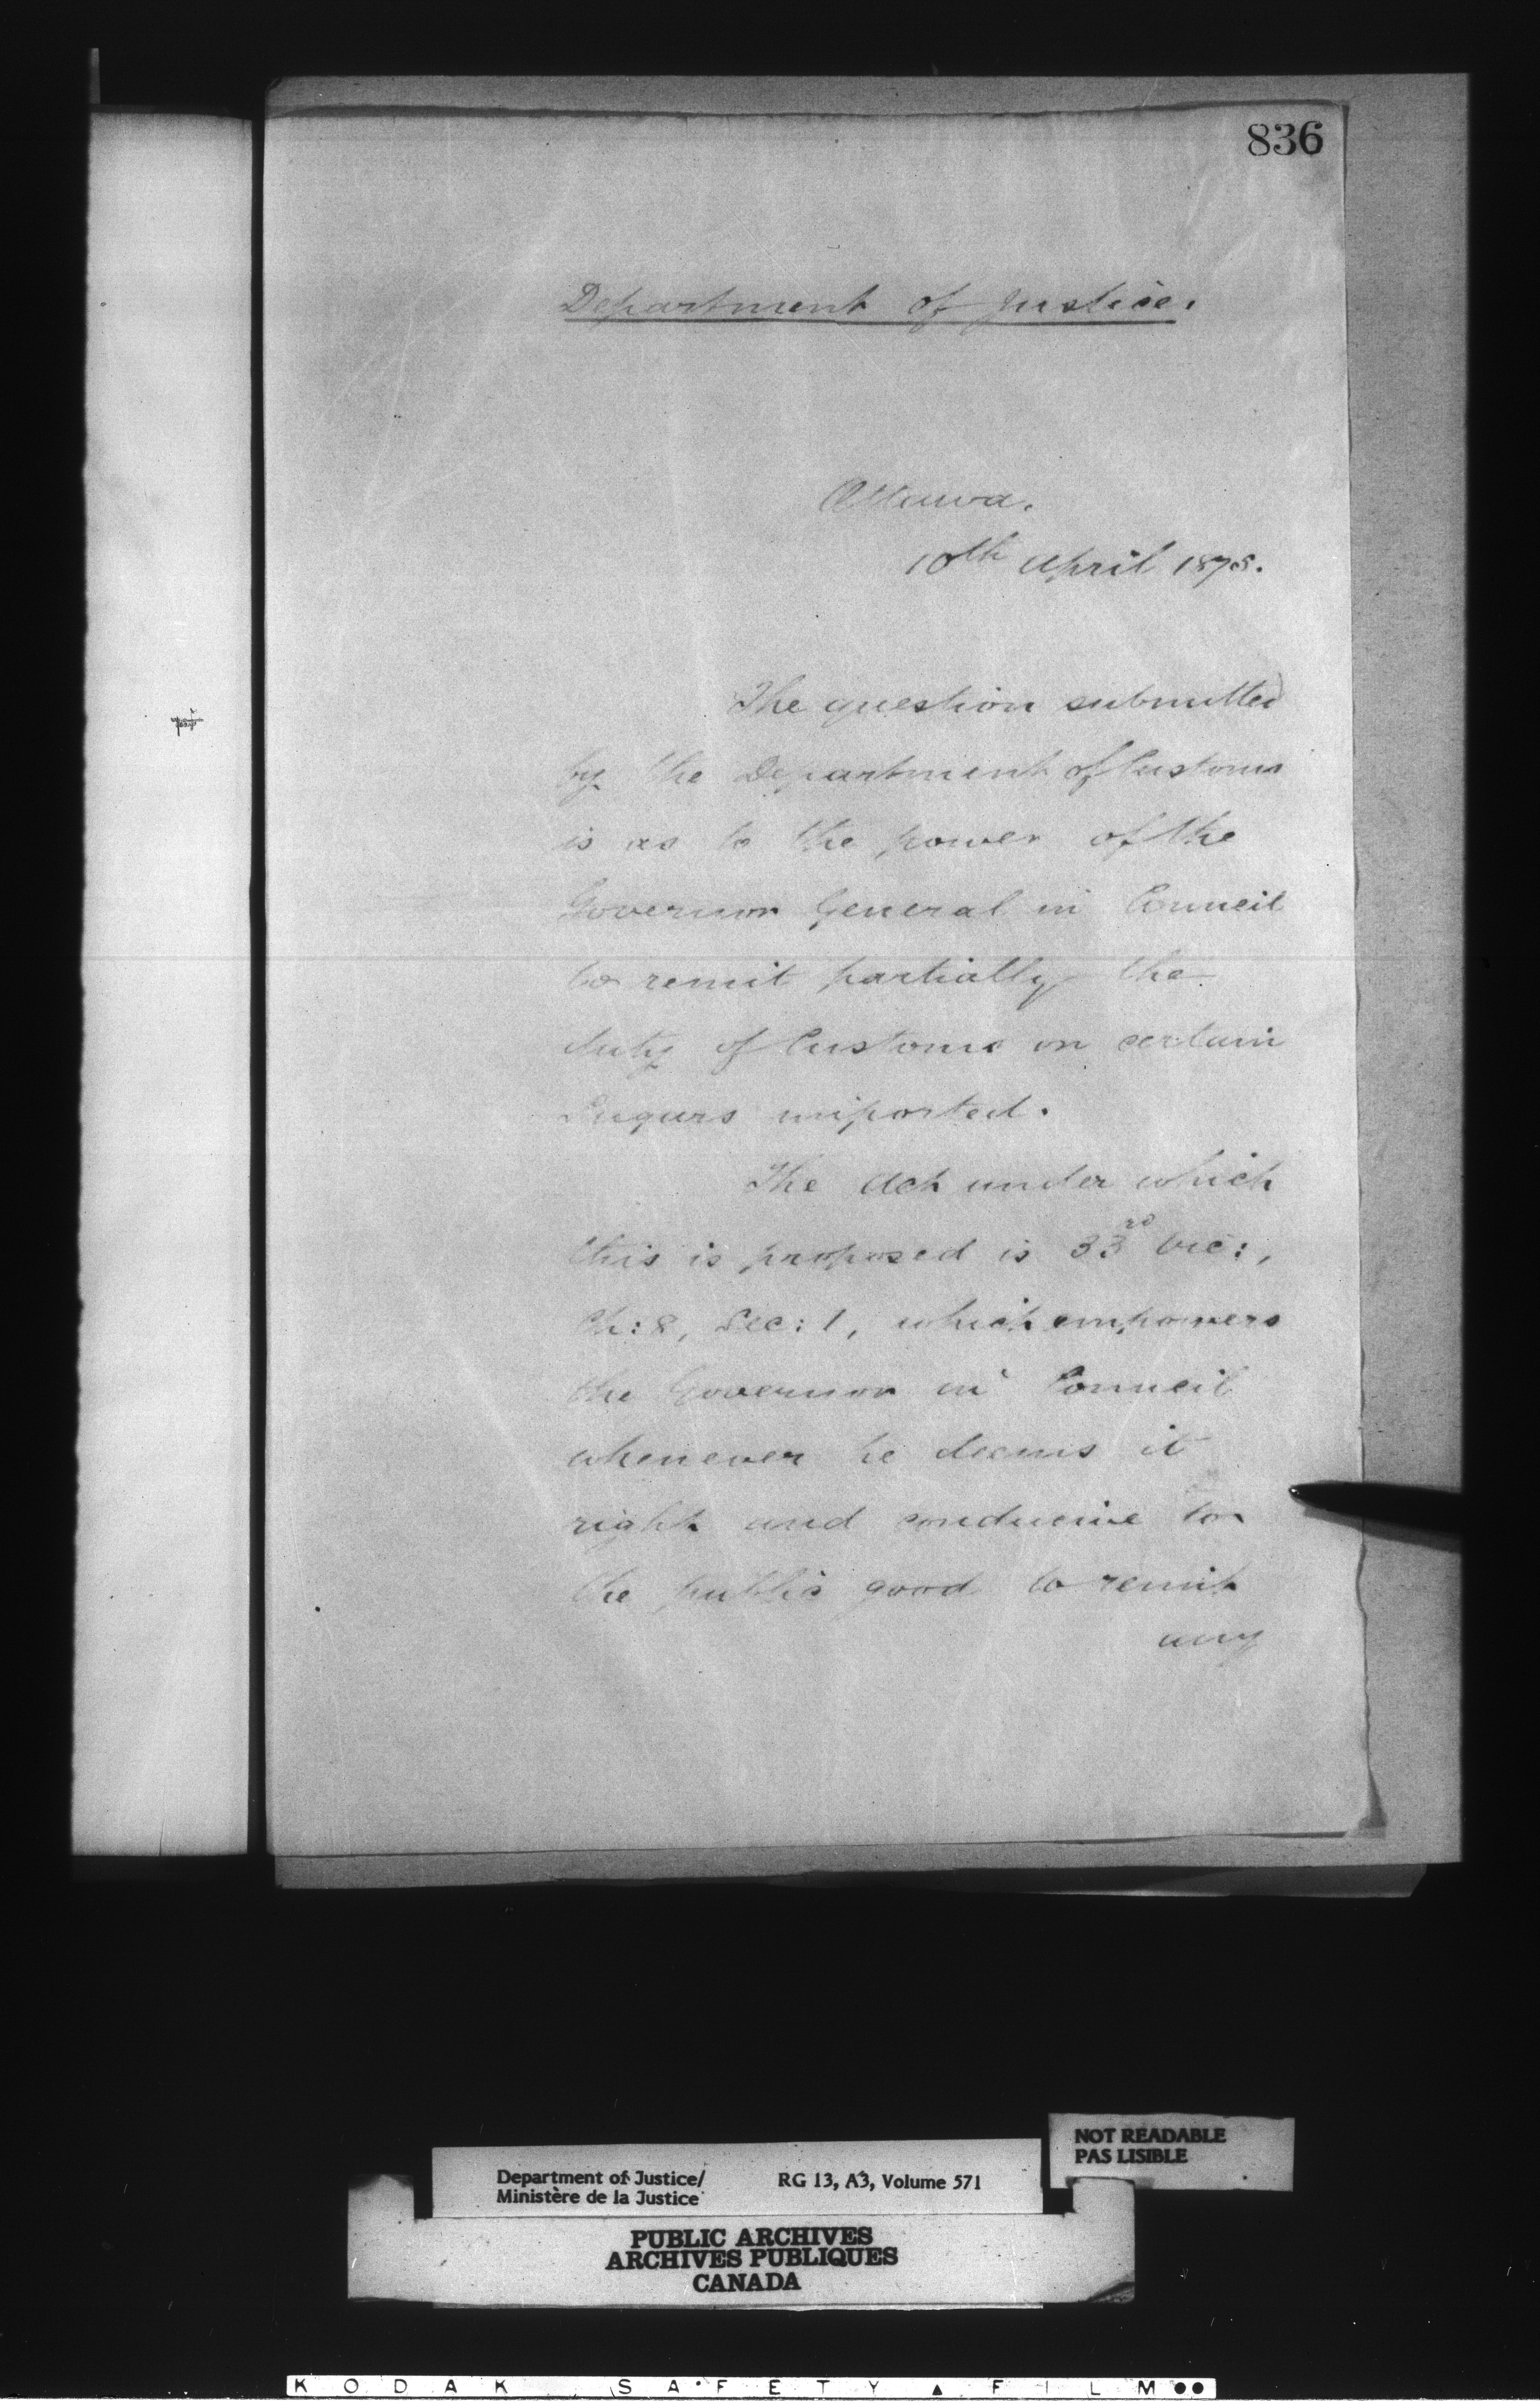 836
Department of Justice.
Ottawa.
10th April 1878.
The question submitted
by the Department of Customs
is as to the power of the
Governor General in Council
to remit partially the
duty of Customs on certain
Sugars imported.
The Act under which
this is proposed is 33rd Vic:,
Ch: 8, Sec: 1, which empowers
the Governor in Council
whenever he deems it
right and conducive to
the public good to remit
any
NOT READABLE
PAS LISIBLE
Department of Justice/ RG 13, A3, Volume 571
Ministère de la Justice
PUBLIC ARCHIVES
ARCHIVES PUBLIQUES
CANADA
KODAK SAFETY ▲ FILM ●●